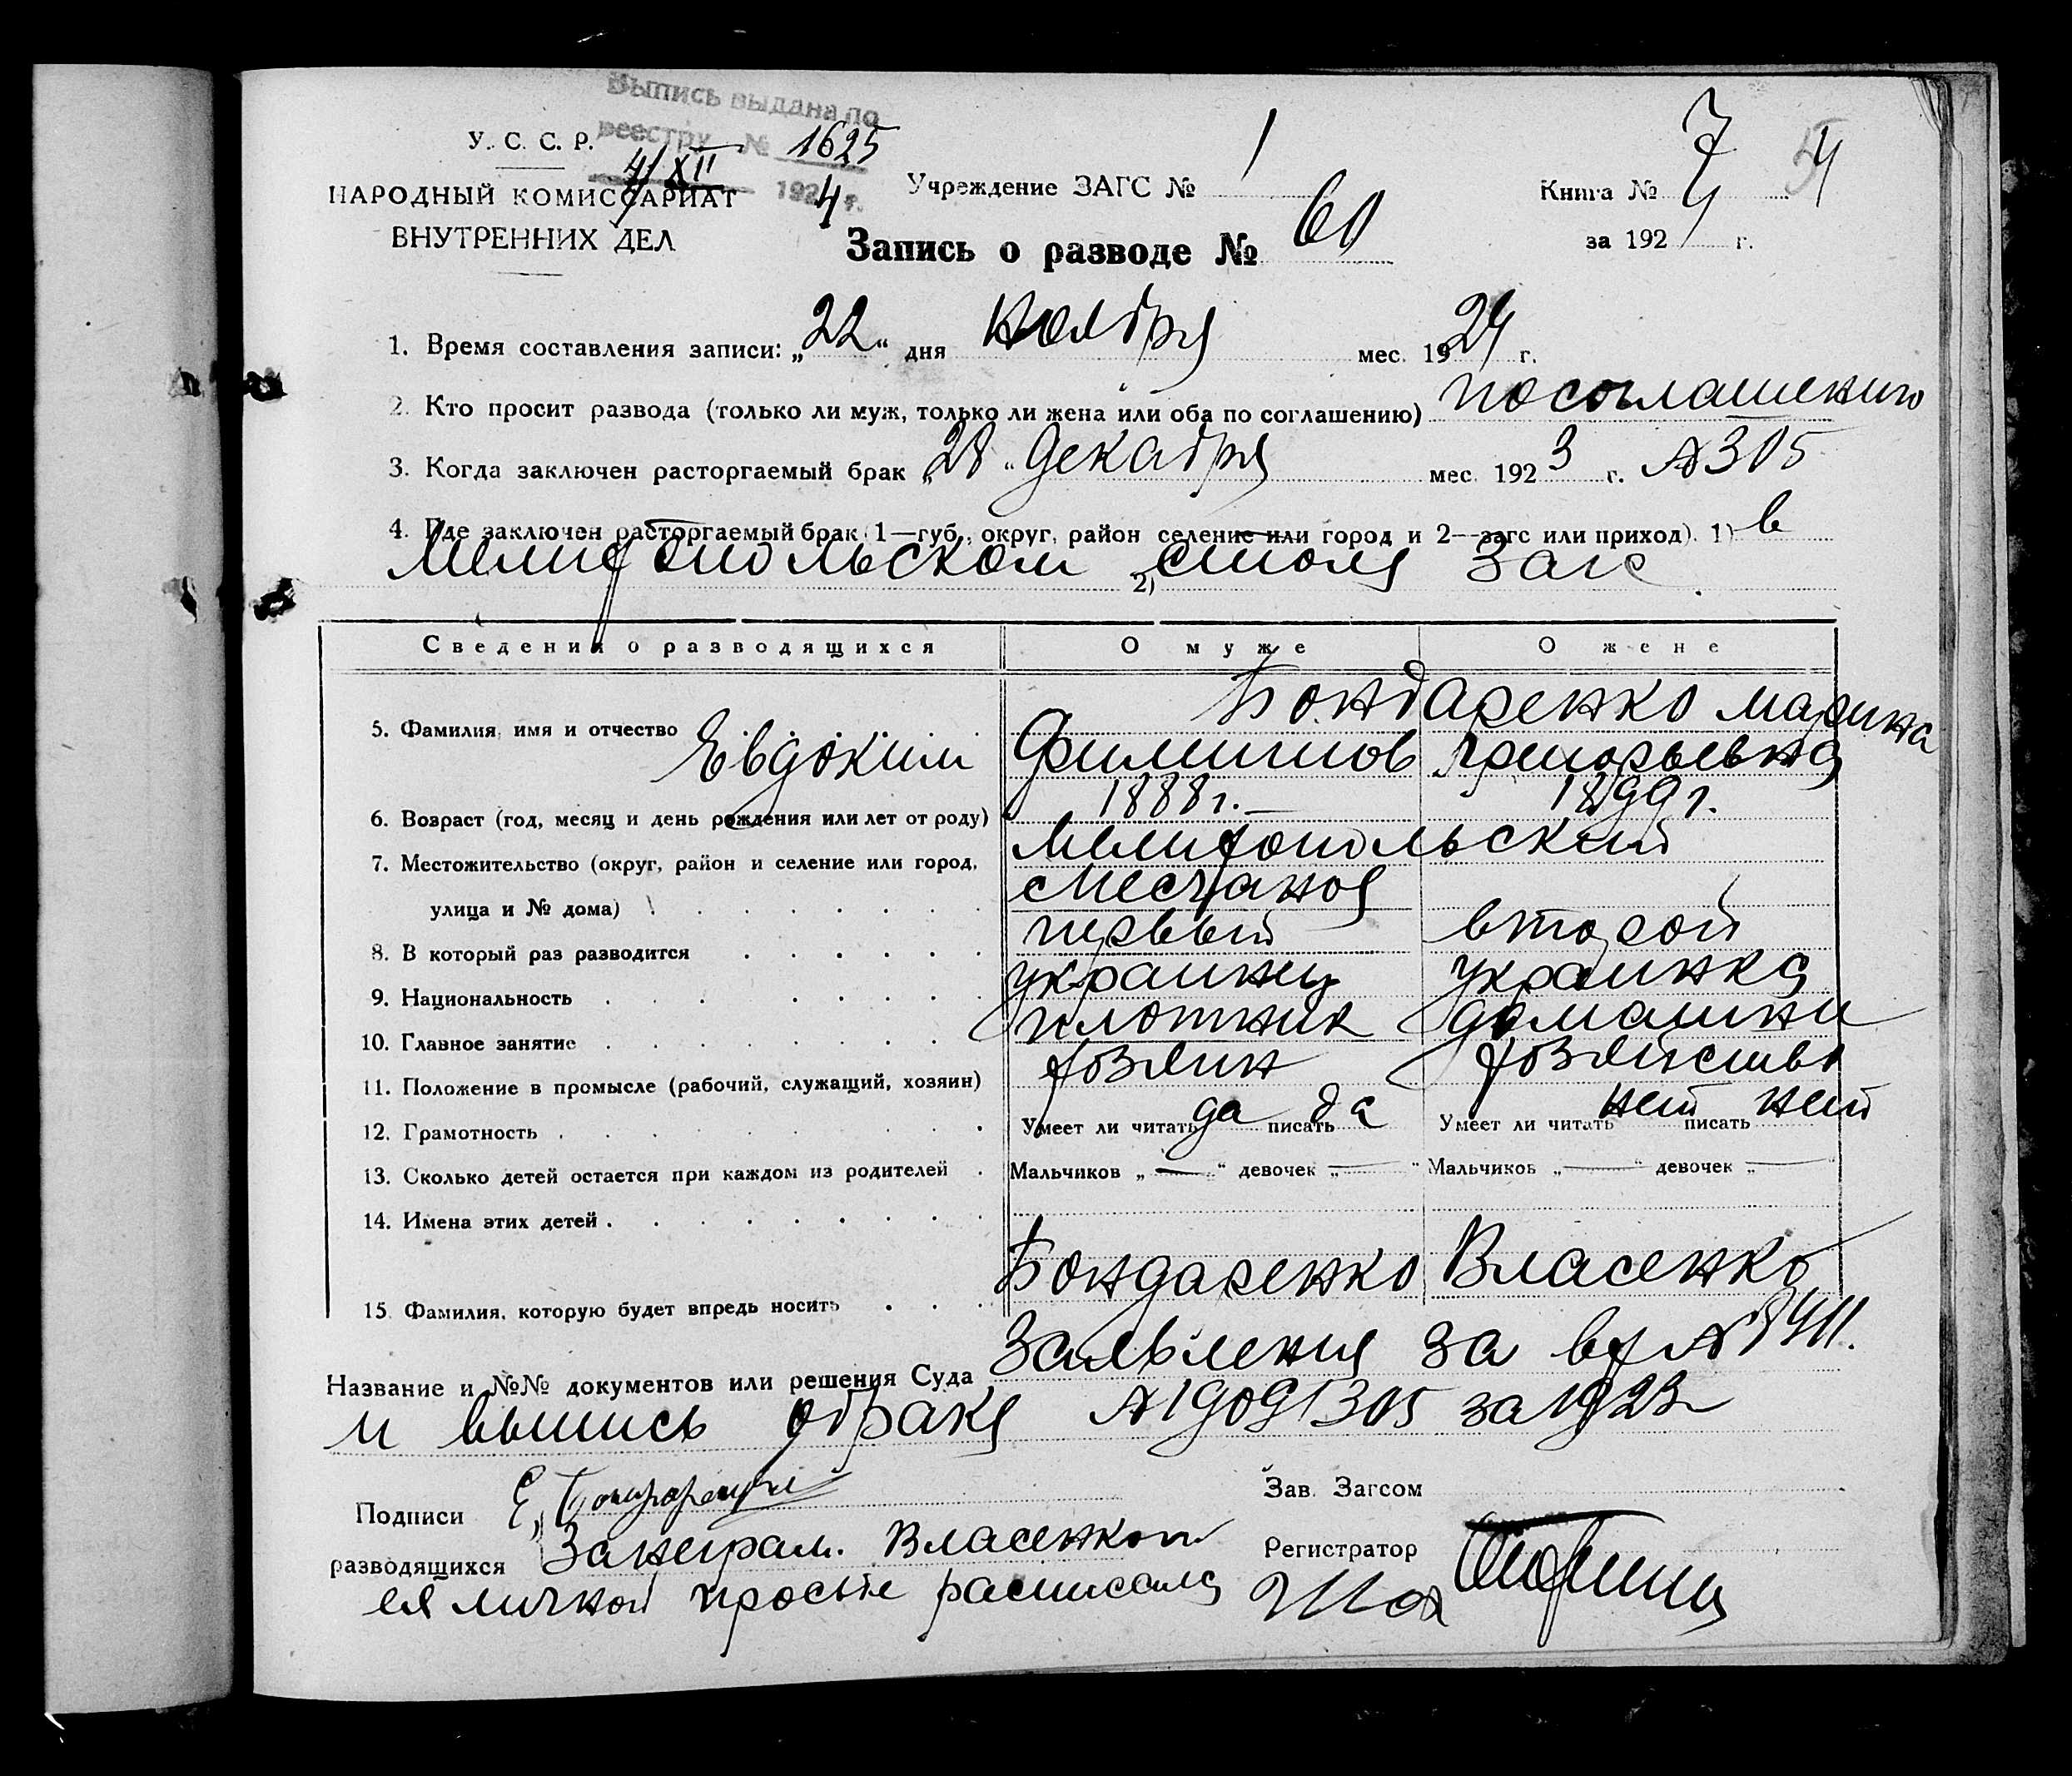 Выпись выдана по
реестру № 1625
4/XII 1924 г.
У. С. С. Р.
НАРОДНЫЙ КОМИССАРИАТ
ВНУТРЕННИХ ДЕЛ
Учреждение ЗАГС № 1
Книга № 7 4
за 1924 г.
Запись о разводе № 60
1. Время составления записи: „22“ дня Ноября мес. 1924 г.
2. Кто просит развода (только ли муж, только ли жена или оба по соглашению) по соглашению
3. Когда заключен расторгаемый брак „28“ Декабря мес. 1923 г. № 305
4. Где заключен расторгаемый брак (1—губ., округ, район селение или город и 2—загс или приход). 1) в
Мелитопольском 2) столя Загс
Сведения о разводящихся О муже О жене
Бондаренко Марина
5. Фамилия, имя и отчество Евдоким Филипов Григорьевна
6. Возраст (год, месяц и день рождения или лет от роду) 1888 г. 1899 г.
7. Местожительство (округ, район и селение или город, Мелитопольский
улица и № дома)
8. В который раз разводится первый второй
9. Национальность украинец украинка
10. Главное занятие плотник домашни
11. Положение в промысле (рабочий, служащий, хозяин) хозяин хозяйства
12. Грамотность Умеет ли читать да писать да Умеет ли читать нет писать нет
13. Сколько детей остается при каждом из родителей Мальчиков „—“ девочек „—“ Мальчиков „—“ девочек „—“
14. Имена этих детей
15. Фамилия, которую будет впредь носить Бондаренко Власенко
Название и №№ документов или решения Суда Заявления за вх №
и выпись обраке № 305 за 1923
Подписи Е. Бондаренко
Зав. Загсом
разводящихся За неграм. Власенкой
Регистратор
ея личной просьбе расписался